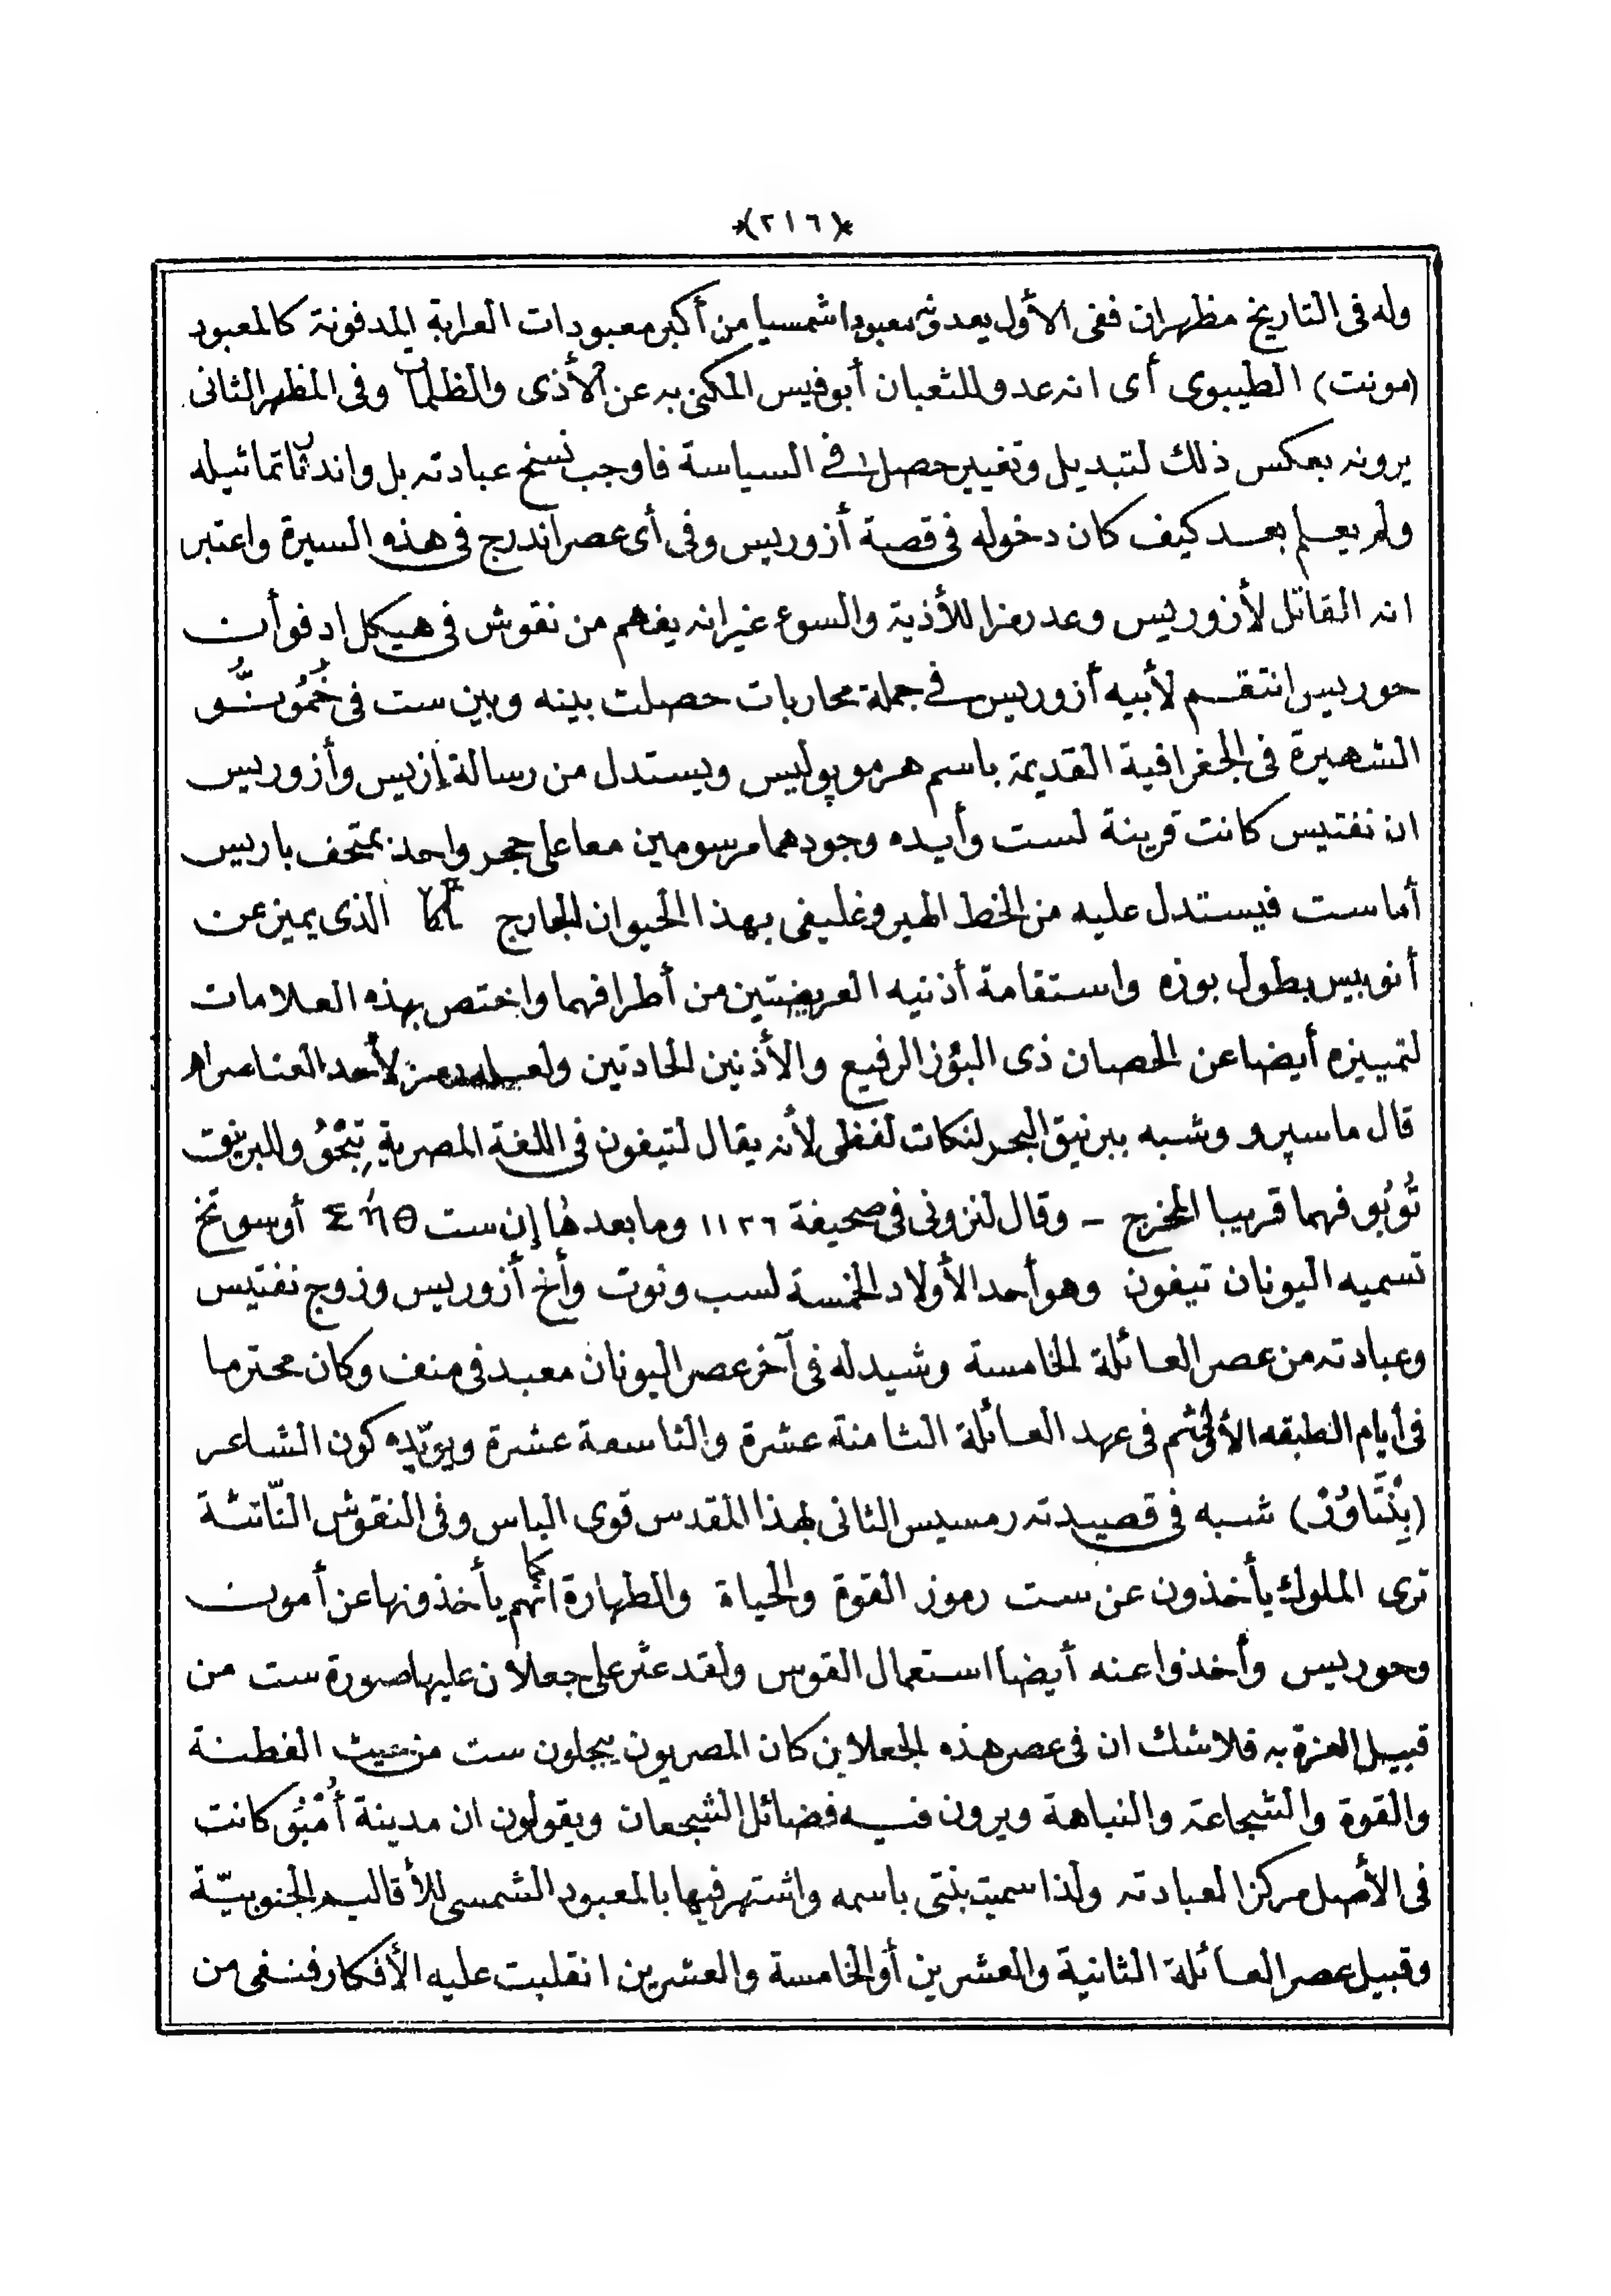 *(٢١٦)*
وله فى التاريخ مظهران ففى الأول يعدونه معبودا شمسيا من أكبر معبودات العرابة المدفونة كالمعبود
(مونت) الطيبوى أى انه عدو للثعبان أبوفيس المكنى به عن الأذى والظلمات وفى المظهر الثانى
يرونه بعكس ذلك لتبديل وتغيير حصلا فى السياسة فاوجب نسخ عبادته بل واندثار تماثيله
ولم يعلم بعد كيف كان دخوله فى قصة أزوريس وفى أى عصر اندرج فى هذه السيرة واعتبر
انه القاتل لأزوريس وعد رمزا للأذية والسوء غير انه يفهم من نقوش فى هيكل ادفو أن
حوريس انتقم لأبيه أزوريس فى جملة محاربات حصلت بينه وبين ست فى خُمُونُّو
الشهيرة فى الجغرافية القديمة باسم هرموپوليس ويستدل من رسالة إزيس وأزوريس
ان نفتيس كانت قرينة لست وأيده وجودهما مرسومين معا على حجر واحد بمتحف باريس
أما ست فيستدل عليه من الخط الهيروغليفى بهذا الحيوان الجارح الذى يميز عن
أنوبيس بطول بوزه واستقامة أذنيه العريضتين من أطرافهما واختص بهذه العلامات
لتمييزه أيضا عن الحصان ذى البوز الرفيع والأذنين الحادتين ولعله رمز لأحد العناصر اه
قال ماسپرو وشبه ببرنيق البحر لنكات لفظى لأنه يقال لتيفون فى اللغة المصرية تِبْخُو وللبرنيق
تُوبُو فهما قريبا المخرج – وقال لنزونى فى صحيفة ١١٢٦ وما بعدها إن ست Σήθ أوسوتخ
تسميه اليونان تيفون وهو أحد الأولاد الخمسة لسب ونوت وأخ أزوريس وزوج نفتيس
وعبادته من عصر العائلة الخامسة وشيد له فى آخر عصر اليونان معبد فى منف وكان محترما
فى أيام الطبقه الأولى ثم فى عهد العائلة الثامنة عشرة والتاسعة عشرة ويؤيده كون الشاعر
(بِنْتَاوُرْ) شبه فى قصيدته رمسيس الثانى بهذا المقدس قوى الباس وفى النقوش النّاتئة
ترى الملوك يأخذون عن ست رموز القوة والحياة والطهارة كما انهم يأخذونها عن أمون
وحوريس وأخذوا عنه أيضا استعمال القوس ولقد عثر على جعلان عليها صورة ست من
قبيل العزة به فلا شك ان فى عصر هذه الجعلان كان المصريون يبجلون ست من حيث الفطنة
والقوة والشجاعة والنباهة ويرون فيه فضائل الشجعان ويقولون ان مدينة أُمْبُو كانت
فى الأصل مركزا لعبادته ولذا سميت بنتى باسمه واشتهر فيها بالمعبود الشمسى للأقاليم الجنوبيّة
وقبيل عصر العائلة الثانية والعشرين أو الخامسة والعشرين انقلبت عليه الأفكار فنفى من